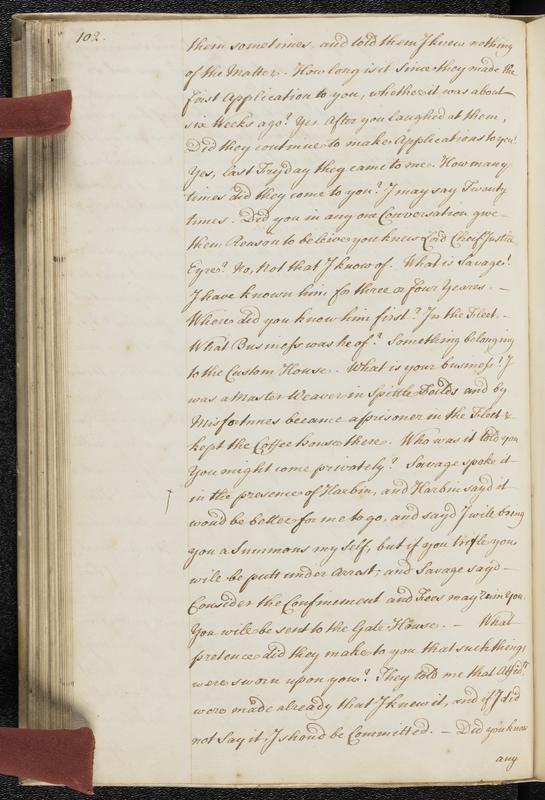 102.
them sometimes, and told them I knew nothing
of the Matter. How long is it Since they made the
first Application to you, whether it was about
six Weeks ago? Yes. After you laughed at them,
Did they continue to make Applications to you?
Yes, last Fryday they came to me. How many
times did they come to you? I may say Twenty
times. Did you in any one Conversation give
them Reason to believe you knew Lord Cheif Justice
Eyre? No, Not that I know of. What is Savage?
I have known him for three or four Yeares. —
Where did you know him first? In the Fleet. —
What Business was he of? Something belonging
to the Custom House. What is your business? I
was a Master Weaver in Spittle Feilds and by
Misfortunes became a prisoner in the Fleet &
kept the Coffee house there. Who was it told you
You might come privately? Savage spoke it
in the presence of Harbin, and Harbin sayd it
woud be better for me to go, and sayd I will bring
you a Summons my self, but if you trifle you
will be putt under Arrest, and Savage sayd —
Consider the Confinement and Fees may ruin You.
You will be sent to the Gate House. — What
pretence did they make to you that such things
were sworn upon you? They told me that Affidts
were made already that I knew it, and if I did
not Say it, I shoud be Committed. — Did you know
any